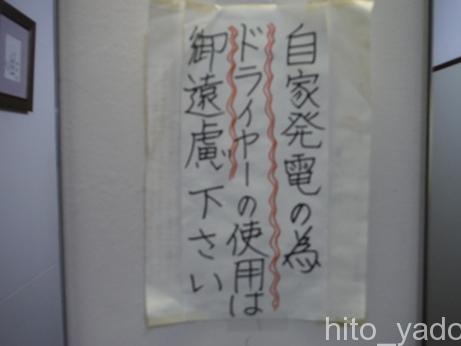 自家発電の為
ドライヤーの使用は
御遠慮下さい
hito_yado